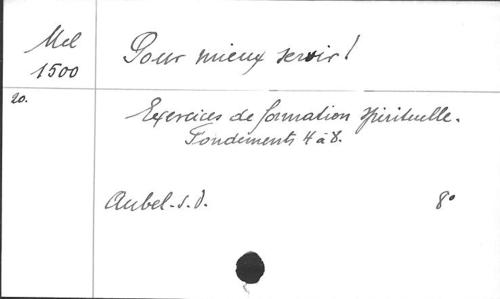 Mel
1500
Pour mieux servir!
20.
Exercices de formation spirituelle.
Fondements 4 à 8.
Aubel - s.d.
8°